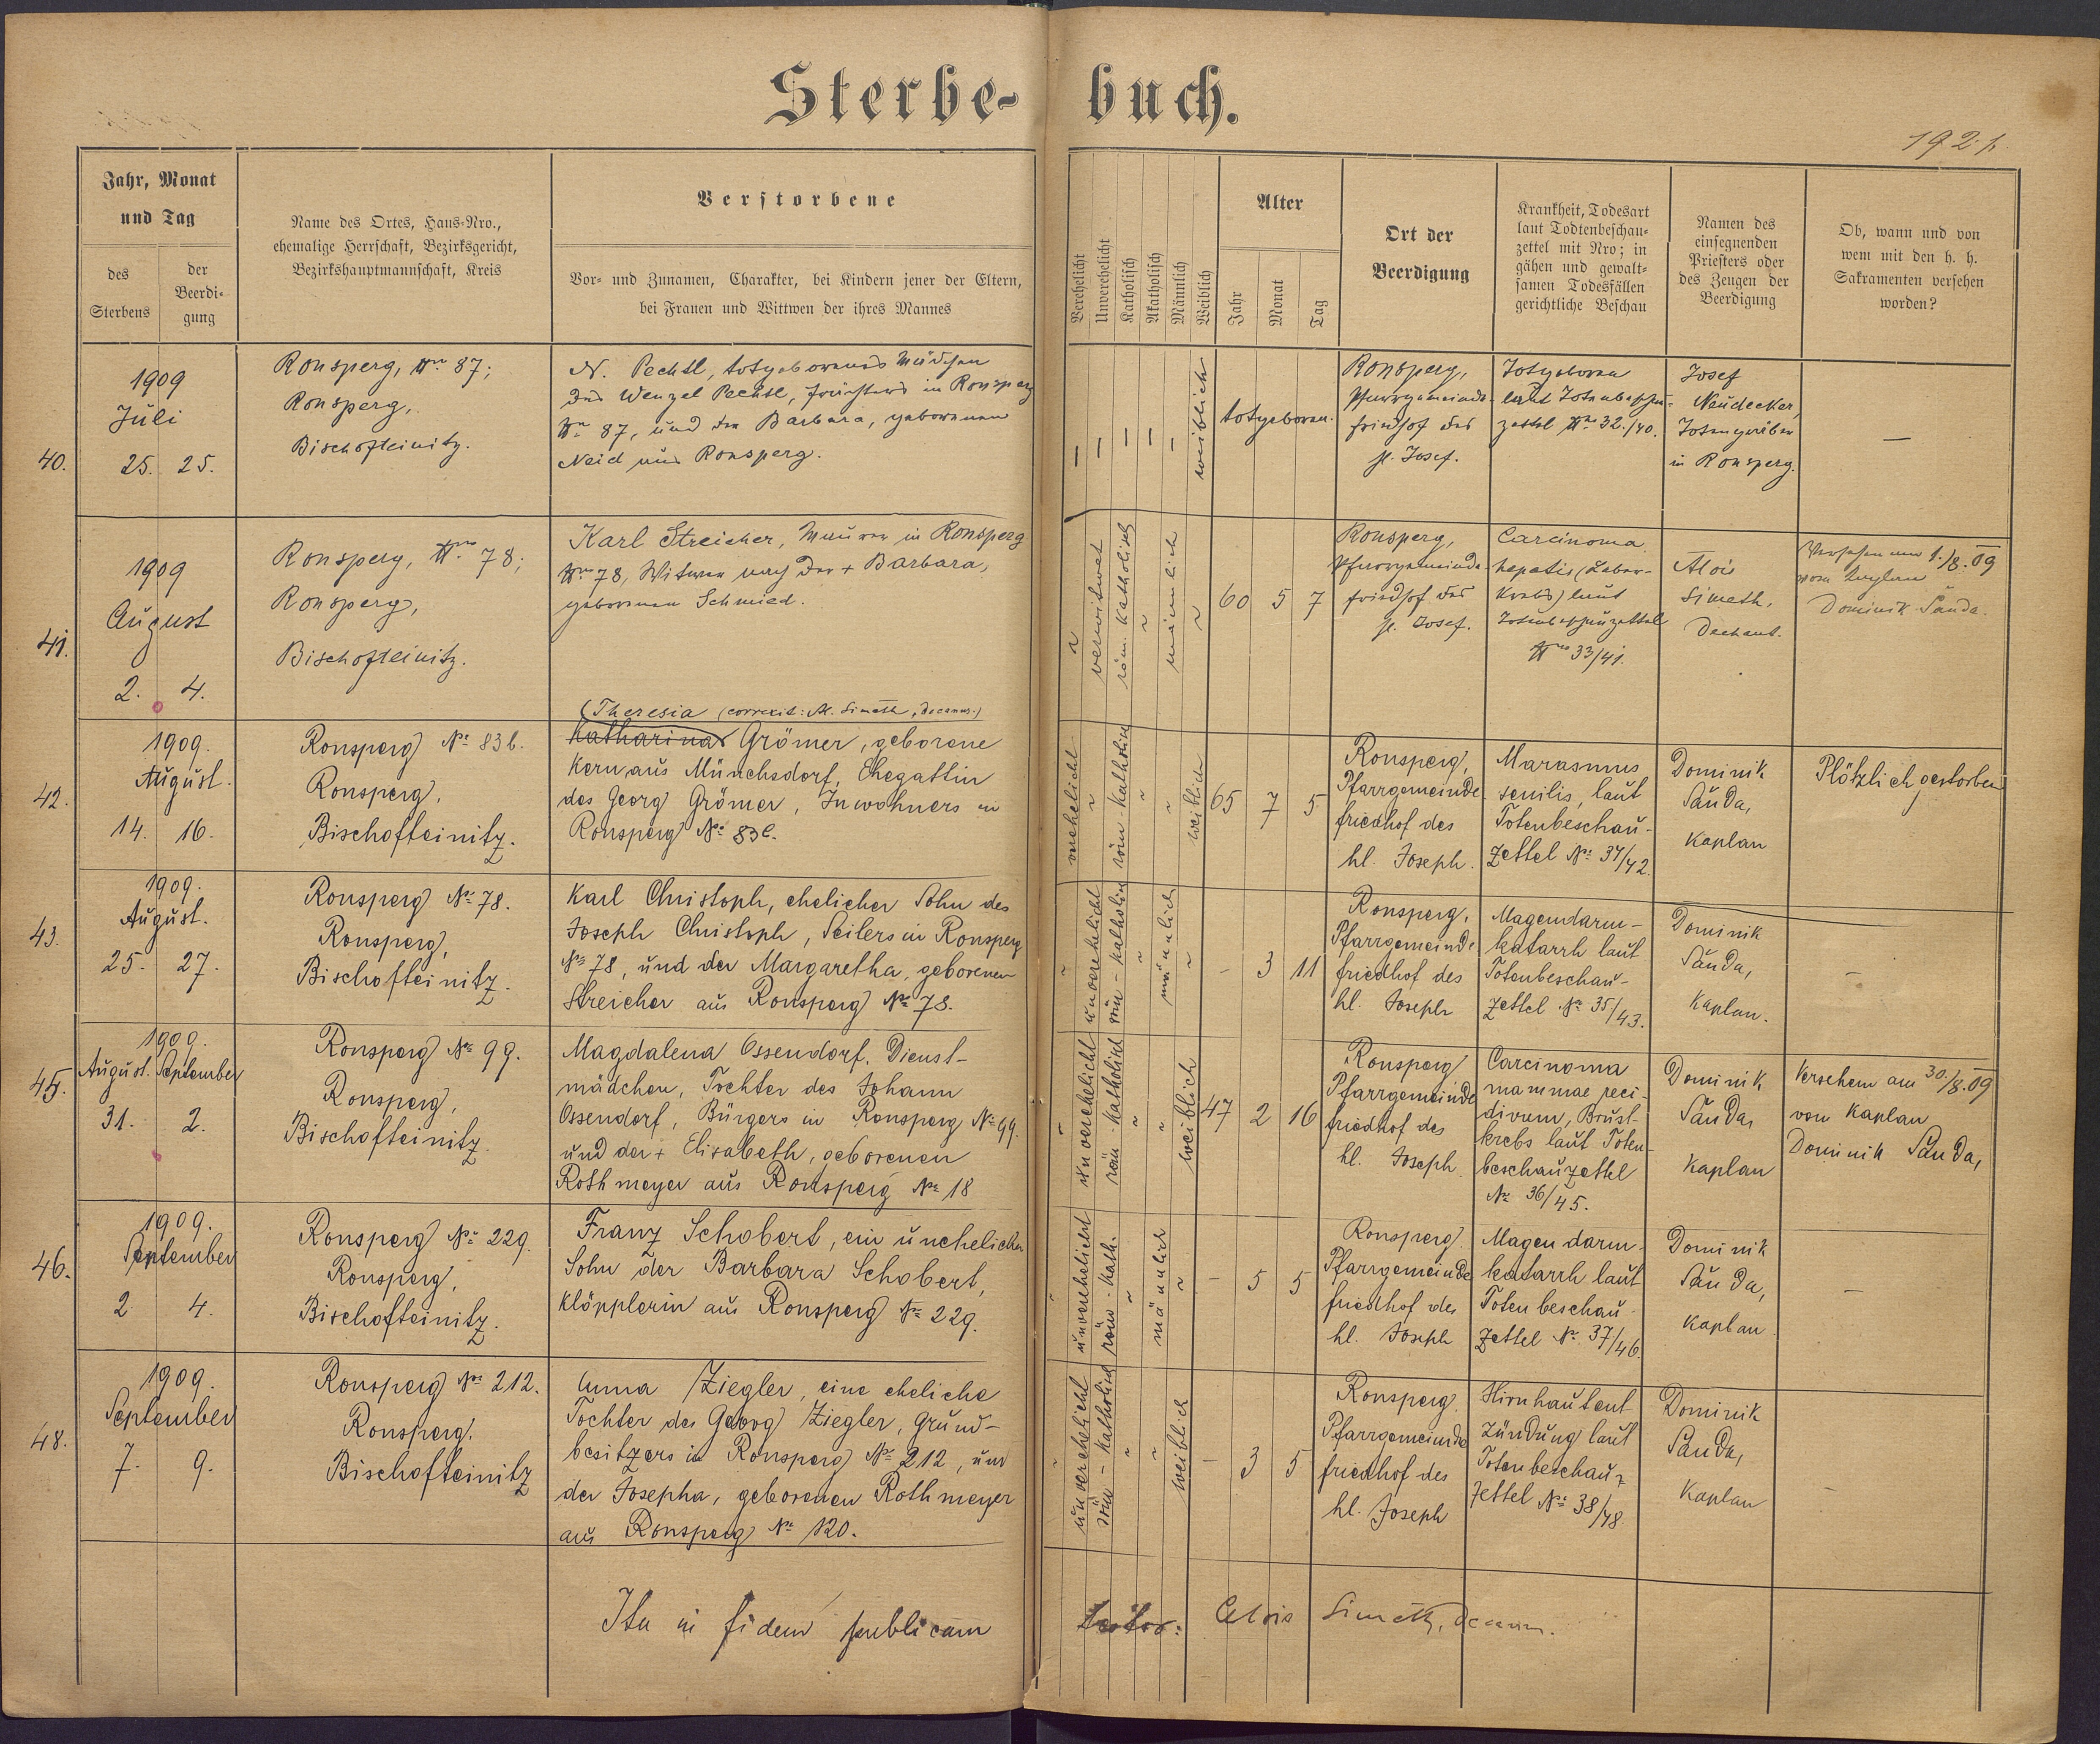 Sterbe-buch.
192.p.
Jahr, Monat
und Tag
des
Sterbens
der
Beerdi-
gung
Name des Ortes, Haus-Nro.,
ehemalige Herrschaft, Bezirksgericht,
Bezirkshauptmannschaft, Kreis
Verstorbene
Vor- und Zunamen, Charakter, bei Kindern jener der Eltern,
bei Frauen und Wittwen der ihres Mannes
Verehelicht
Unverehelicht
Katholisch
Akatholisch
Männlich
Weiblich
Alter
Jahr
Monat
Tag
Ort der
Beerdigung
Krankheit, Todesart
laut Todtenbeschau-
zettel mit Nro; in
gähen und gewalt-
samen Todesfällen
gerichtliche Beschau
Namen des
einsegnenden
Priesters oder
des Zeugen der
Beerdigung
Ob, wann und von
wem mit den h. h.
Sakramenten versehen
worden?
40.
1909
Juli
25. 25.
Ronsperg, Nro 87;
Ronsperg,
Bischofteinitz.
N. Pechtl, totgeborenes Mädchen
des Wenzel Pechtl, in Ronsperg
Nro 87, und der Barbara, geborenen
Neid aus Ronsperg.
— — — — — weiblich
totgeboren.
Ronsperg,
Pfarrgemeinde-
friedhof des
hl. Josef.
Totgeboren
laut Totenbeschau-
zettel Nro 32./40.
Josef
Neudecker,
Totengräber
in Ronsperg.
—
41.
1909
August
2. 4.
Ronsperg, Nro 78;
Ronsperg,
Bischofteinitz.
Karl Streicher, Maurer in Ronsperg
Nro 78, Witwer nach der + Barbara,
geborenen Schmied.
~ verwitwet röm. katholisch ~ männlich ~
60 5 7
Ronsperg,
Pfarrgemeinde-
friedhof des
hl. Josef.
Carcinoma
hepatis (Leber-
krebs) laut
Totenbeschauzettel
Nro 33/41.
Alois
Simeth,
Dechant.
Versehen am 1./8. 09
vom Kaplan
Dominik Sanda.
42.
1909.
August.
14. 16.
Ronsperg No 83 b.
Ronsperg,
Bischofteinitz.
(Theresia (correxit: Al. Simeth, decanus.)
Katharina Grömer, geborene
Kern aus Münchsdorf, Ehegattin
des Georg Grömer, Inwohners in
Ronsperg No 83 b.
verehelicht ~ röm-katholisch ~ ~ weiblich
65 7 5
Ronsperg,
Pfarrgemeinde-
friedhof des
hl. Joseph.
Marasmus
senilis, laut
Totenbeschau-
zettel No 34/42.
Dominik
Sanda,
Kaplan
Plötzlich gestorben
43.
1909.
August.
25. 27.
Ronsperg No 78.
Ronsperg,
Bischofteinitz.
Karl Christoph, ehelicher Sohn des
Joseph Christoph, Seilers in Ronsperg
No 78, und der Margaretha, geborenen
Streicher aus Ronsperg No 78.
~ unverehelicht röm-katholisch ~ männlich ~
- 3 11
Ronsperg,
Pfarrgemeinde
friedhof des
hl. Joseph
Magendarm-
katarrh laut
Totenbeschau-
zettel No 35/43.
Dominik
Sanda,
Kaplan.
—
45.
1909.
August. September
31. 2.
Ronsperg No 99.
Ronsperg,
Bischofteinitz.
Magdalena Ossendorf, Dienst-
mädchen, Tochter des Johann
Ossendorf, Bürgers in Ronsperg No 99.
und der + Elisabeth, geborenen
Rothmeyer aus Ronsperg No 18
~ unverehelicht röm-katholisch ~ ~ weiblich
47 2 16
Ronsperg
Pfarrgemeinde
friedhof des
hl. Joseph.
Carcinoma
mammae reci-
divum, Brust-
krebs laut Toten-
beschauzettel
No 36/45.
Dominik
Sanda,
Kaplan
Versehen am 30./8. 09
von Kaplan
Dominik Sanda,
46.
1909.
September
2 4.
Ronsperg No 229.
Ronsperg,
Bischofteinitz.
Franz Schobert, ein unehelicher
Sohn der Barbara Schobert,
Klöpplerin aus Ronsperg No 229.
~ unverehelicht röm-kath. ~ männlich ~
- 5 5
Ronsperg
Pfarrgemeinde
friedhof des
hl. Joseph
Magendarm-
katarrh laut
Totenbeschau-
zettel No 37/46.
Dominik
Sanda,
Kaplan
—
48.
1909.
September
7. 9.
Ronsperg No 212.
Ronsperg.
Bischofteinitz
Anna Ziegler, eine eheliche
Tochter des Georg Ziegler, Grund-
besitzers in Ronsperg No 212, und
der Josepha, geborenen Rothmeyer
aus Ronsperg No 120.
~ unverehelicht röm-katholisch ~ ~ weiblich
- 3 5
Ronsperg.
Pfarrgemeinde
friedhof des
hl. Joseph
Hirnhautent
zündung laut
Totenbeschau-
zettel No 38/48.
Dominik
Sanda,
Kaplan
—
Ita in fidem publicam testor: Alois Simeth, decanus.